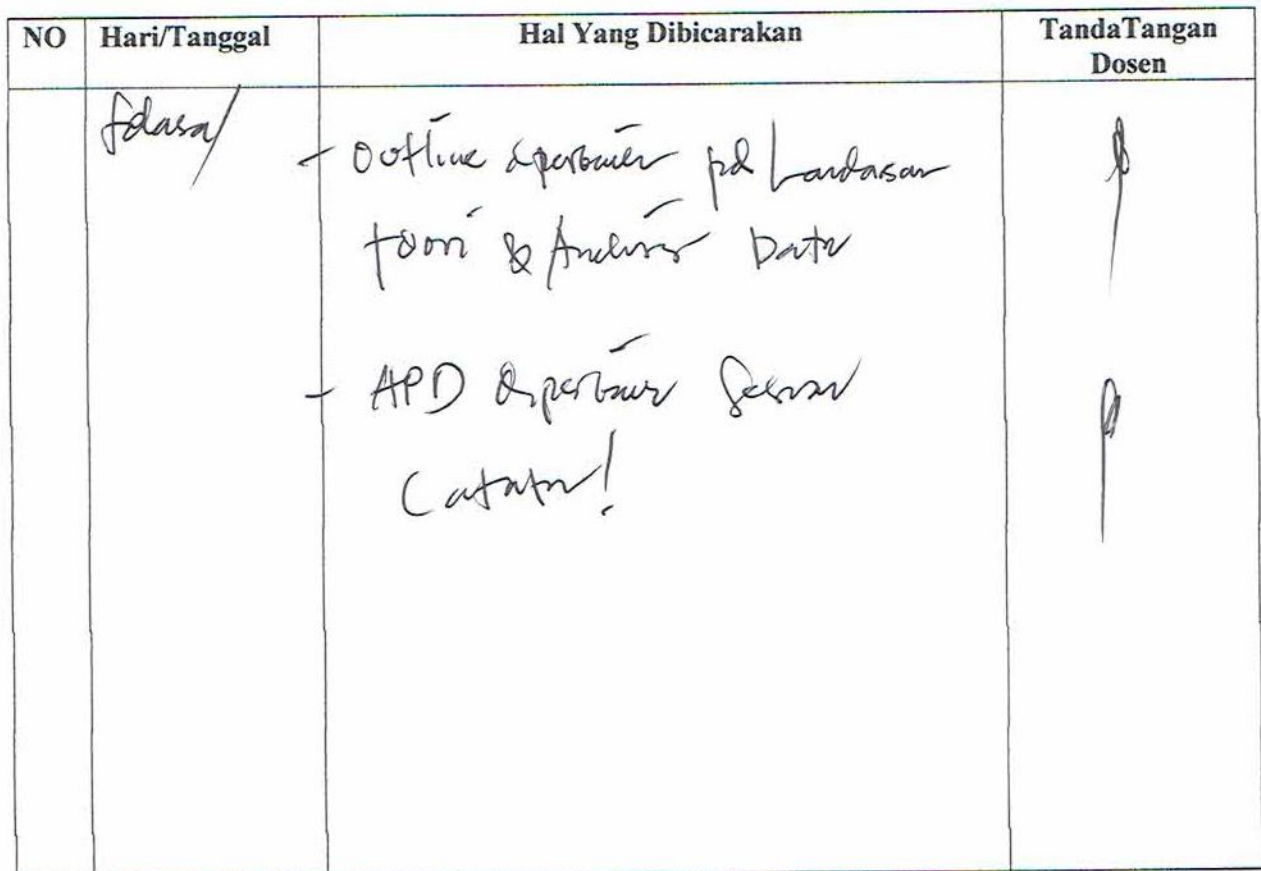 NO Hari/Tanggal Hal Yang Dibicarakan TandaTangan
Dosen
Selasa/
- Outline diperbaiki pd Landasan
teori & Analisis Data
- APD diperbaiki sesuai
Catatan!